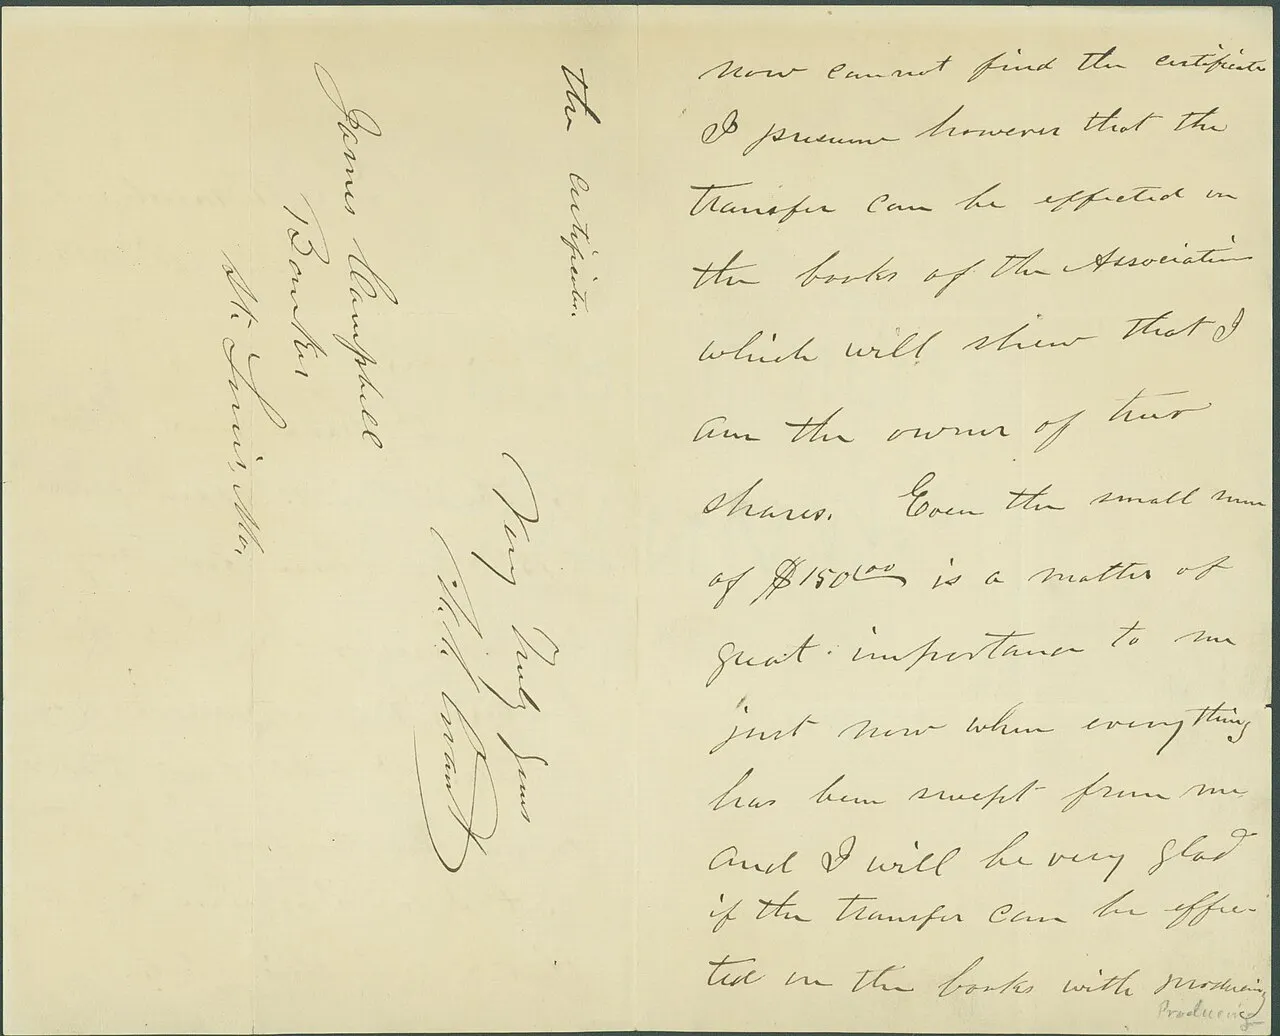 now cannot find the certificate
I presume however that the
transfer can be effected on
the books of the Association
which will shew that I
am the owner of two
shares. Even the small sum
of $150.00 is a matter of
great importance to me
just now when everything
has been swept from me
and I will be very glad
if the transfer can be effec-
ted on the books with producing
Producing
the certificate.
Very Truly yours
U. S. Grant
James Campbell
Banker
St. Louis, Mo.